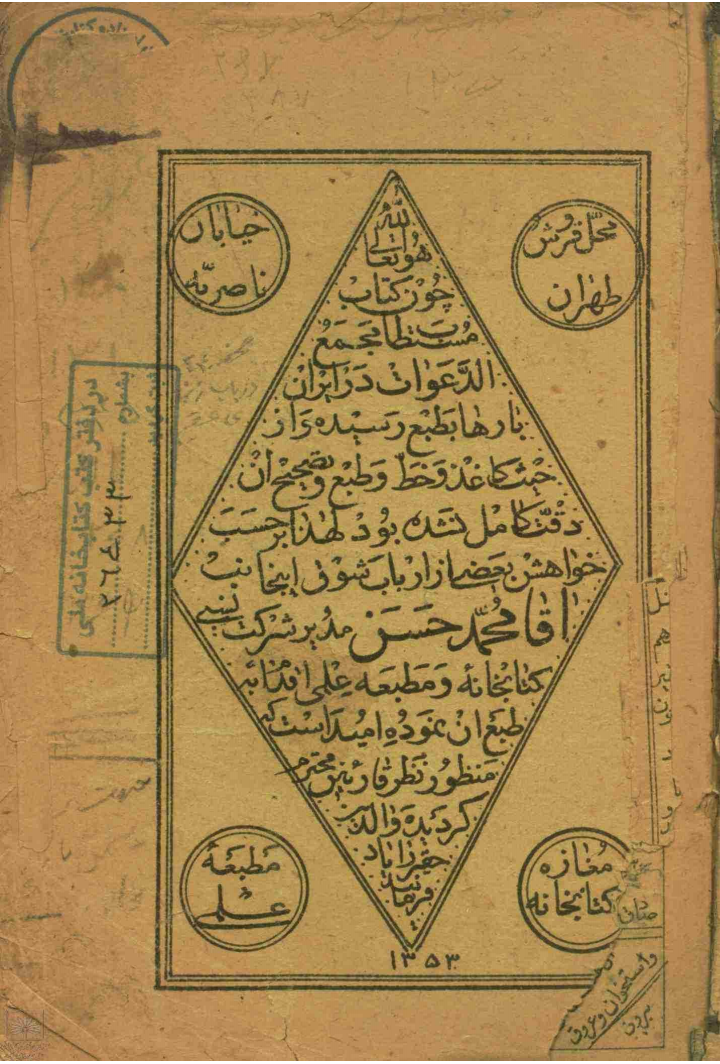 محل فروش
طهران
خیابان
ناصریه
هو الله تعالی
چون کتاب
مستطاب مجمع
الدعوات در ایران
بارها بطبع رسیده و از
حیث کاغذ و خط و طبع و تصحیح آن
دقت کامل نشده بود لهذا بر حسب
خواهش بعضی از ارباب شوق اینجانب
آقا محمد حسن مدیر شرکت نسبی
کتابخانه و مطبعه علمی اقدام به
طبع آن نموده امید است که
منظور نظر قارئین محترم
گردیده والدین
حقیر را یاد
فرمایند
مغازه
کتابخانه
مطبعهٔ
علمی
۱۳۵۳
در دفتر کتب کتابخانه ملی
بشماره
۲۶۴۳۳
ثبت گردید
واستخوان و عروق
بیرون